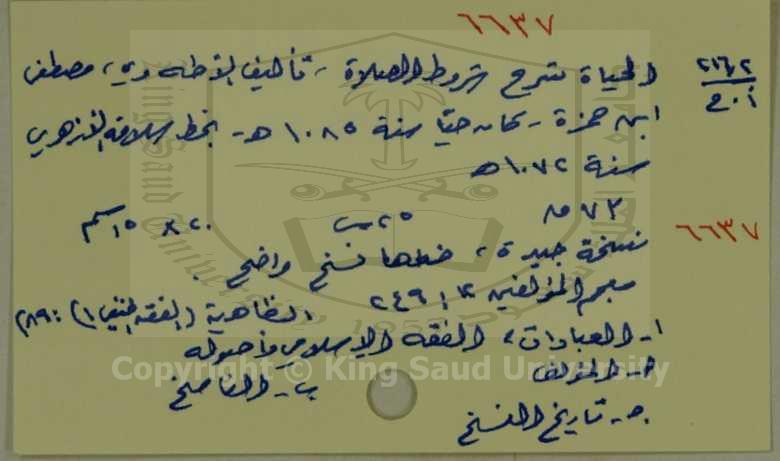 ٦٦٣٧
٢١٦٫٢
أ.ح
الحياة شرح شروط الصلاة، تأليف الأطه وي، مصطفى
ابن حمزة - كان حيا سنة ١٠٨٥ هـ - بخط سلامة الأزهري
سنة ١٠٧٢ هـ
٧٣ ق ٢٥ س ٢٠ × ١٥ سم
٦٦٣٧
نسخة جيدة، خطها نسخ واضح.
معجم المؤلفين ١٢: ٢٤٩ الظاهرية (الفقه الحنفي ١): ٢٨٩
١- العبادات، الفقه الإسلامي وأصوله
أ- المؤلف ب- الناسخ
جـ- تاريخ النسخ
Copyright © King Saud University
1957